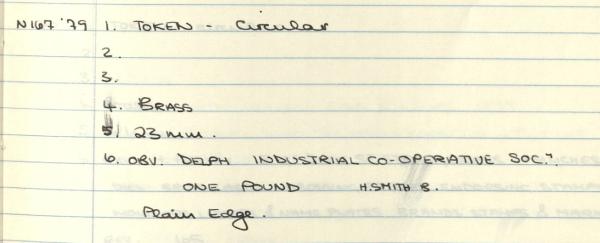 N167 '79 1. TOKEN - Circular
2.
3.
4. BRASS
5. 23 mm.
6. OBV. DELPH INDUSTRIAL CO-OPERATIVE SOC.Y
ONE POUND H.SMITH B.
Plain Edge.